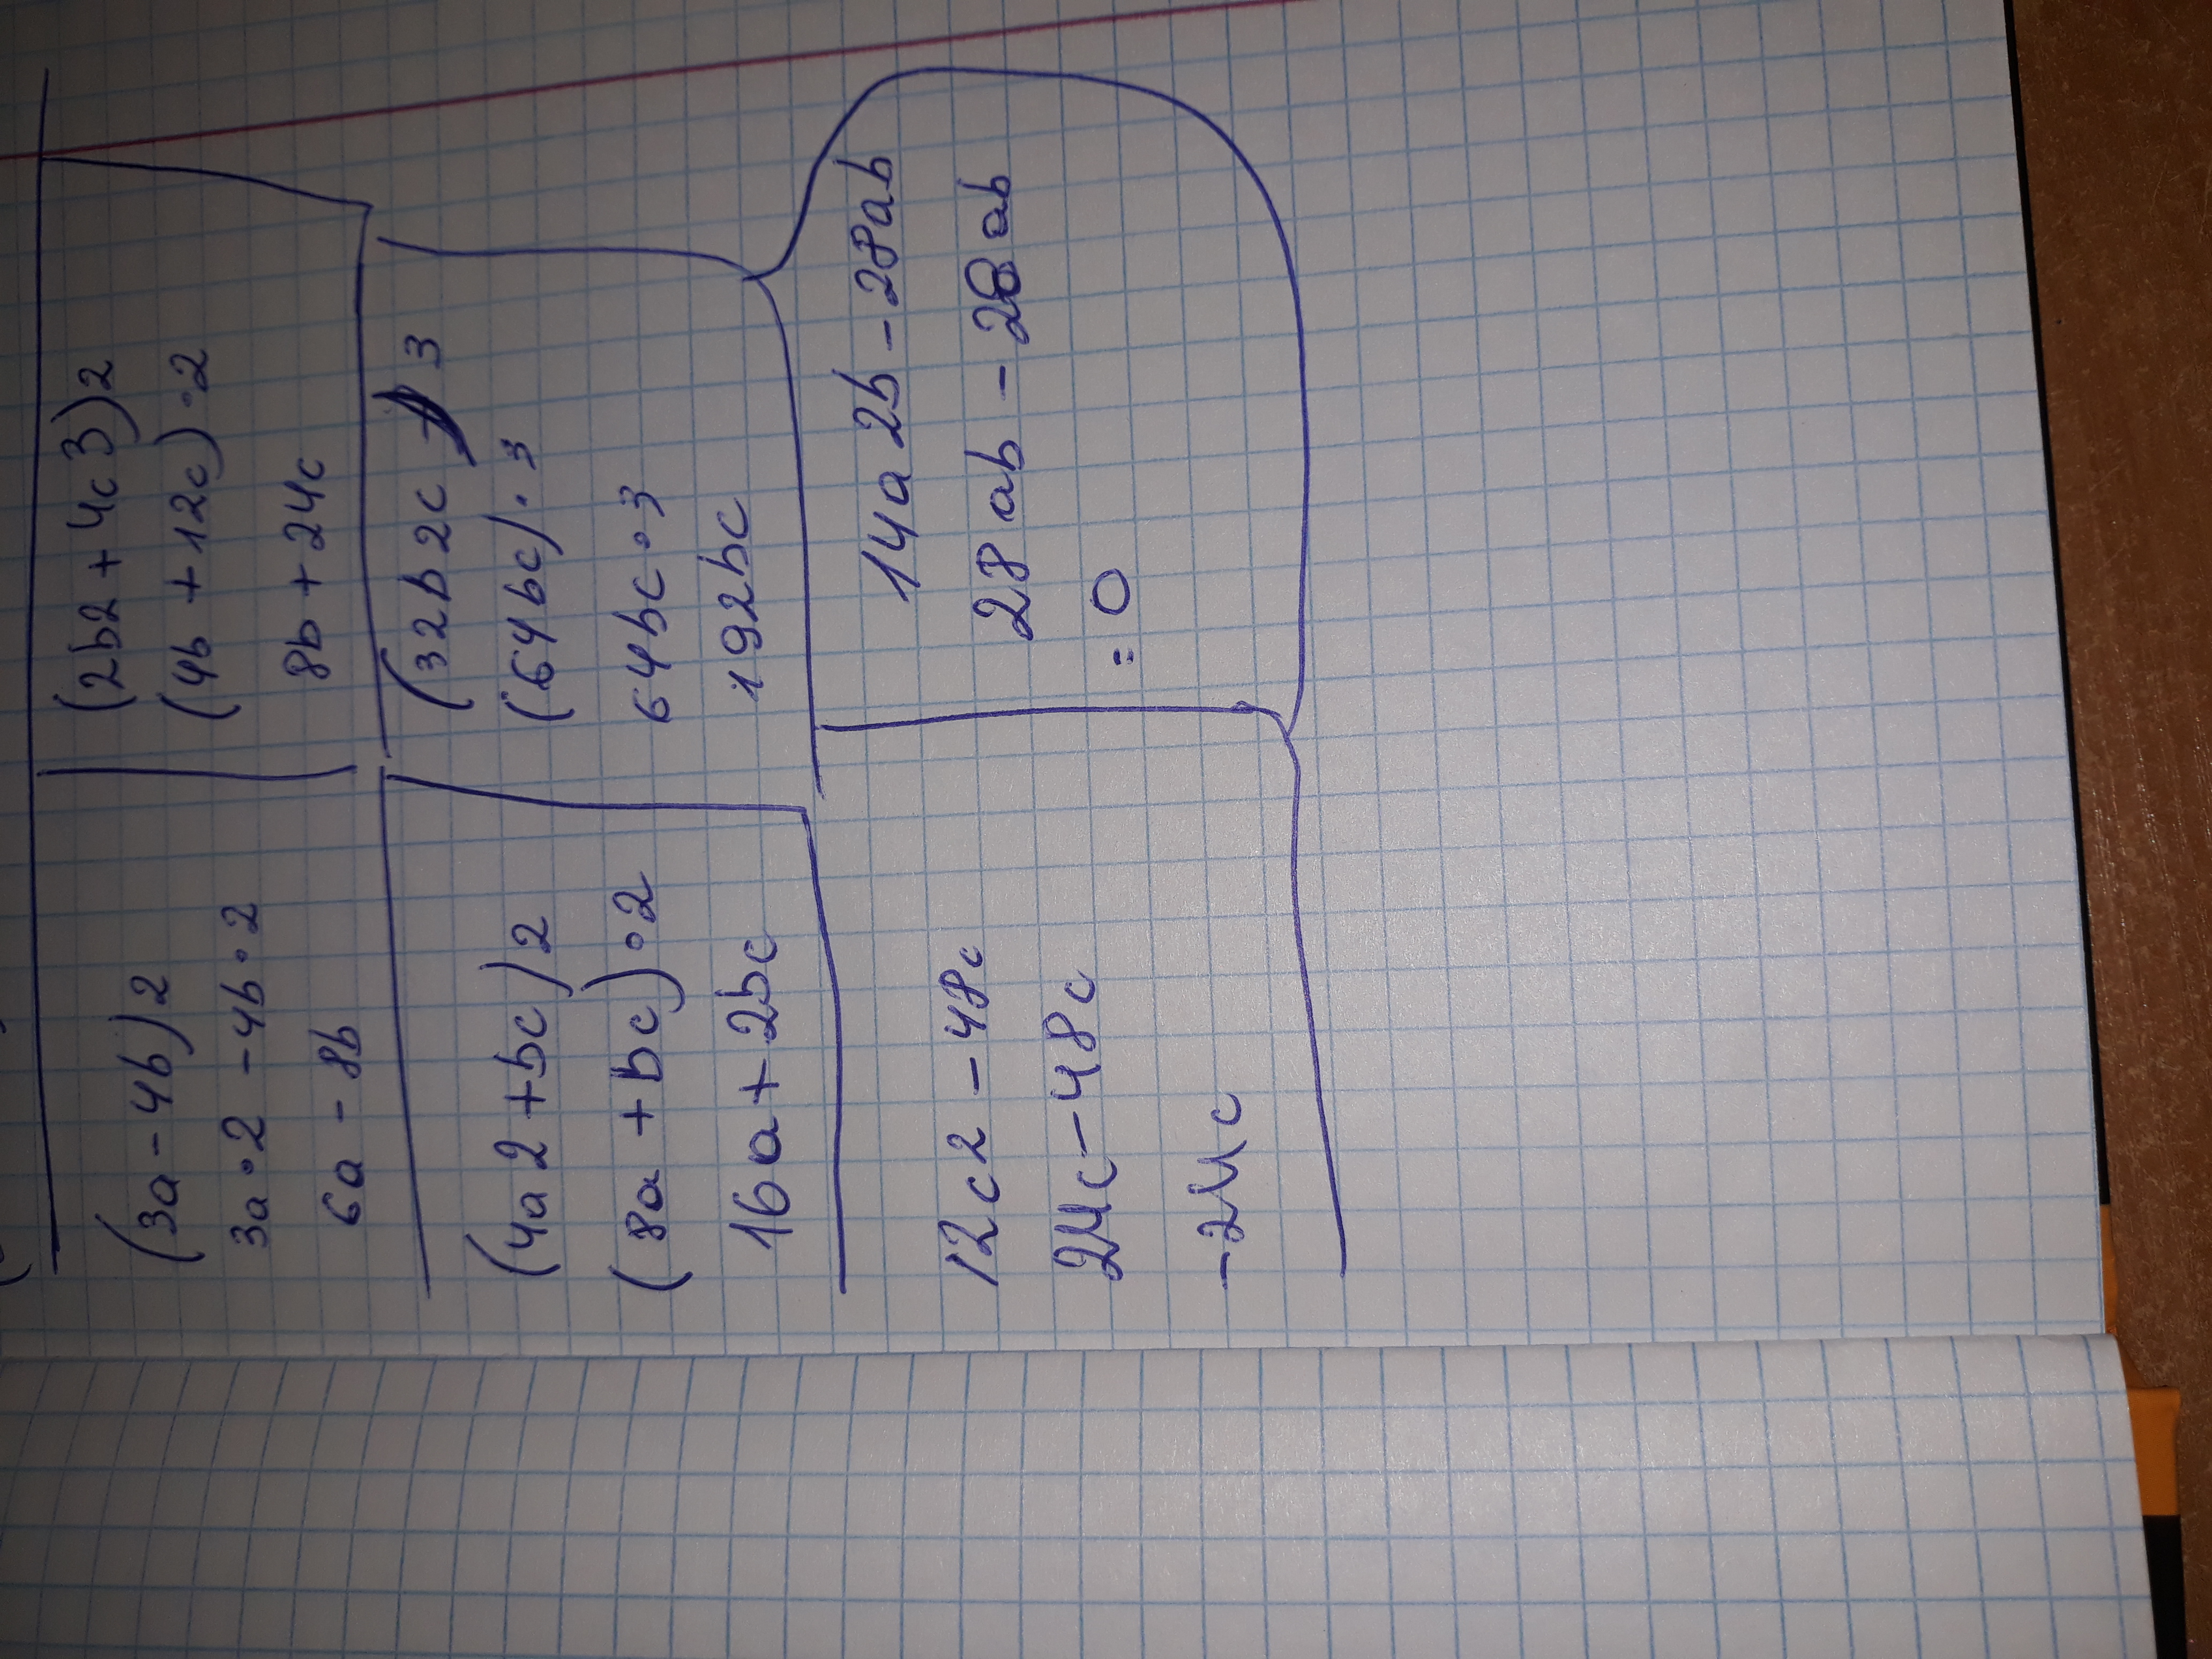 (3a-4b)2
3a·2-4b·2
6a-8b
(2b2+4c3)2
(4b+12c)·2
8b+24c
(4a2+bc)2
(8a+bc)·2
16a+2bc
(32b2c 3
(64bc)·3
64bc·3
192bc
12c2-48c
24c-48c
-24c
14a2b-28ab
28ab-28ab
=0